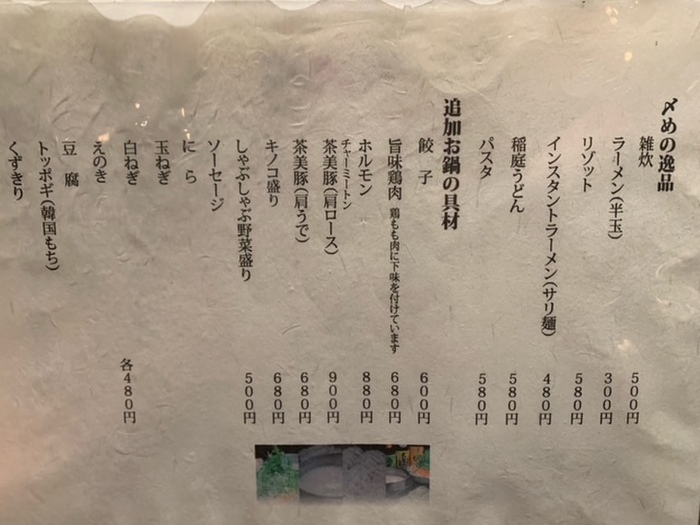 〆めの逸品
雑炊 500円
ラーメン(半玉) 300円
リゾット 580円
インスタントラーメン(サリ麺) 480円
稲庭うどん 580円
パスタ 580円
追加お鍋の具材
餃子 600円
旨味鶏肉 鶏もも肉に下味を付けています 680円
ホルモン 880円
チャーミートン
茶美豚(肩ロース) 900円
茶美豚(肩うで) 680円
キノコ盛り 680円
しゃぶしゃぶ野菜盛り 500円
ソーセージ
にら
玉ねぎ
白ねぎ 各480円
えのき
豆腐
トッポギ(韓国もち)
くずきり